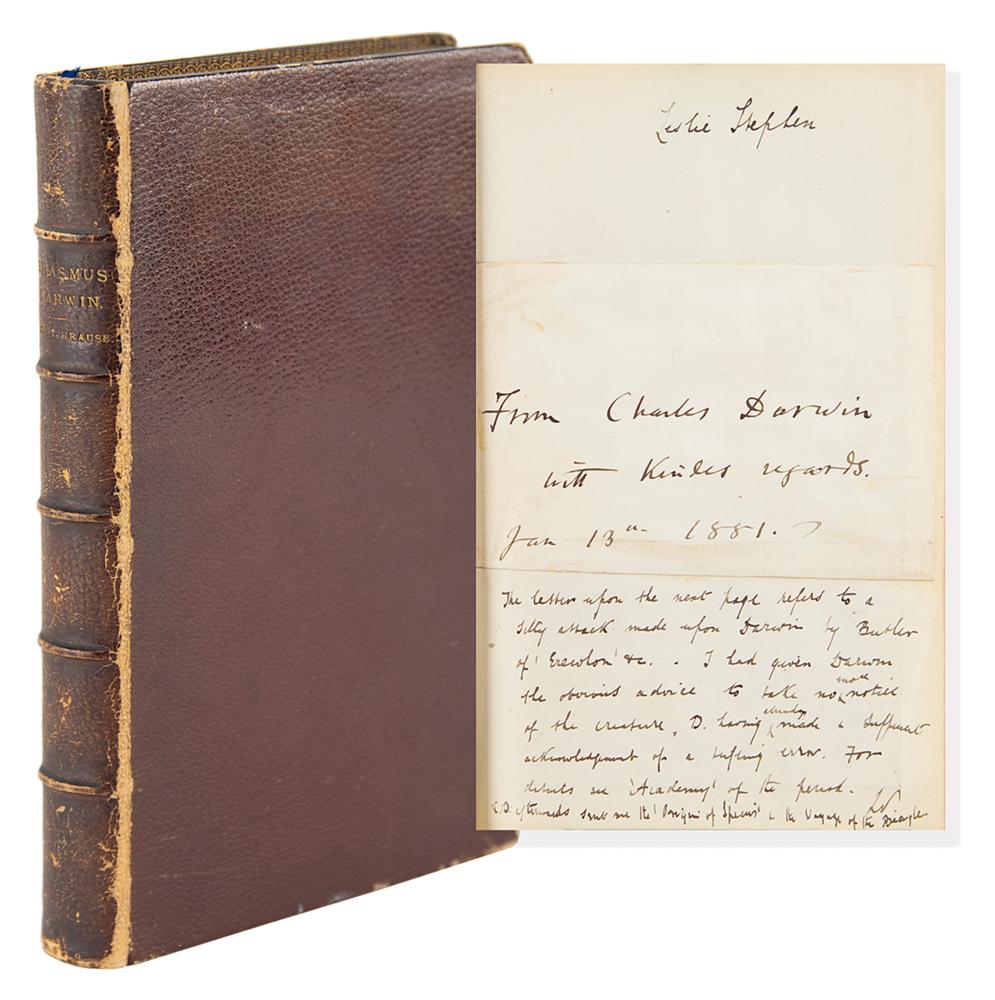 ERASMUS
DARWIN.
KRAUSE.
Leslie Stephen
From Charles Darwin
with kindest regards.
Jan 13th 1881.
The letter upon the next page refers to a
silly attack made upon Darwin by Butler
of 'Erewhon' &c. . I had given Darwin
the obvious advice to take no more notice
of the creature, D. having already made a sufficient
acknowledgement of a trifling error. For
details see 'Academy' of the period.
LS
C.D. afterwards sent me the 'Origin of Species' & the Voyage of the Beagle